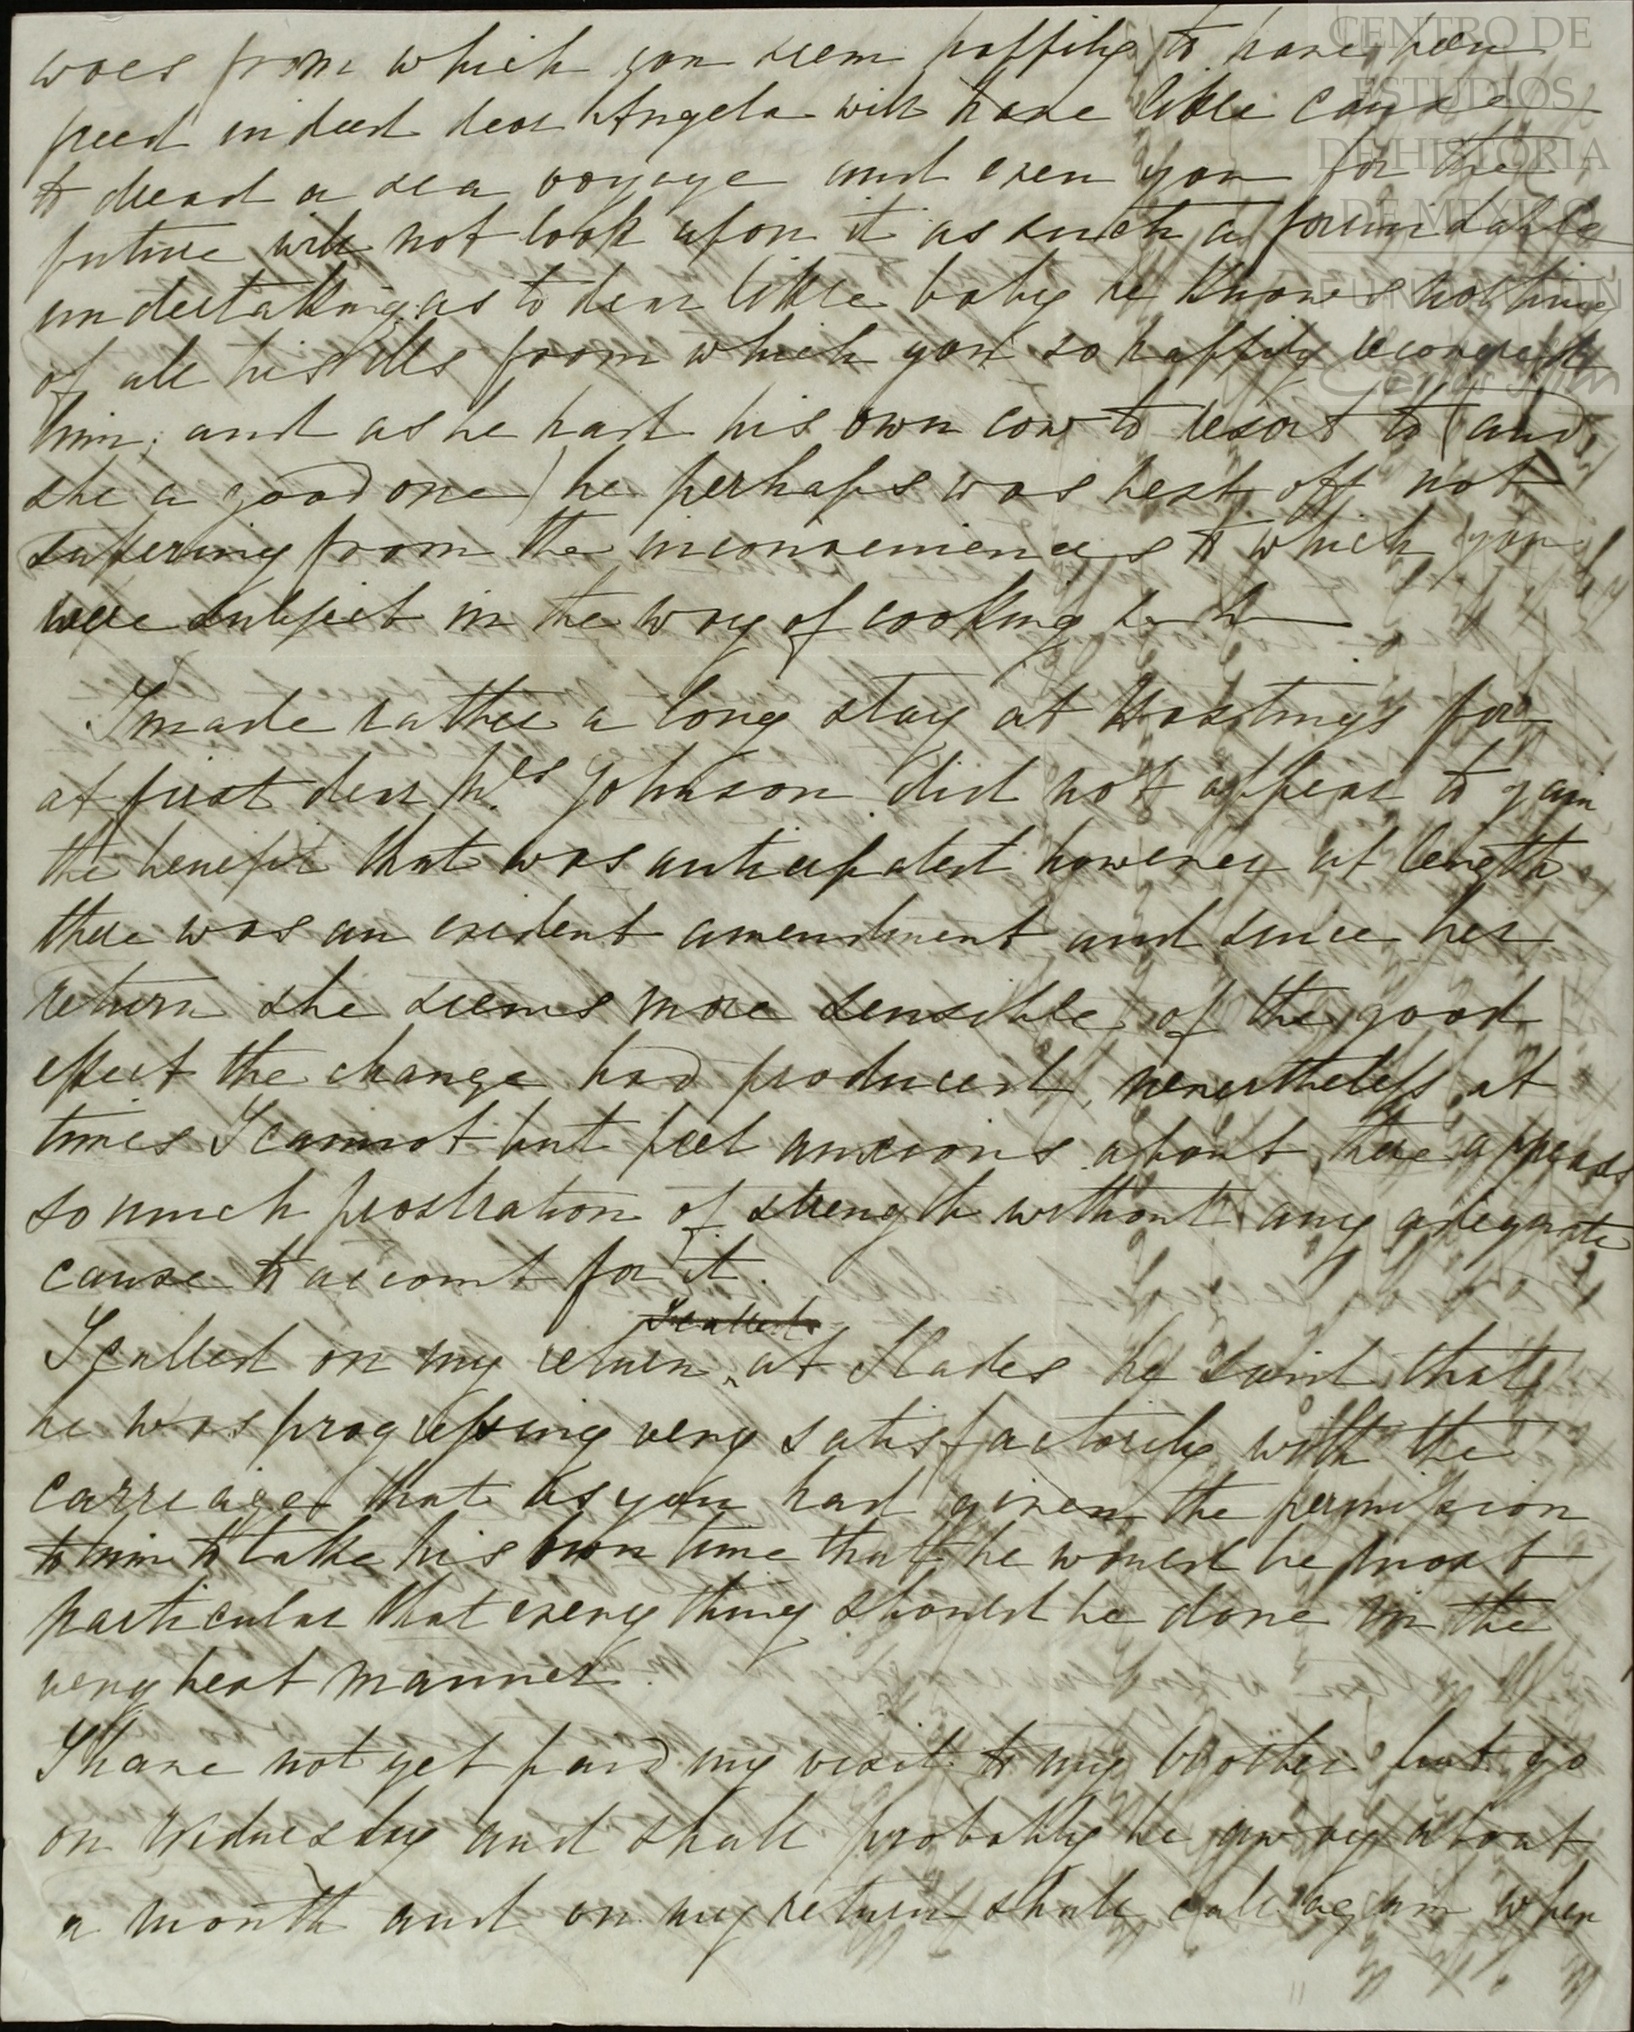 woes from which you seem happily to have been
freed indeed dear Angela will have little cause
to dread a sea voyage and even you for the
future will not look upon it as such a formidable
undertaking. as to dear little baby he knows nothing
of all his ills from which you so happily
him; and as he had his own cow to resort to (and
she a good one) he perhaps was best off not
suffering from the inconveniences to which you
were subject in the way of cooking &c &c
I made rather a long stay at Hastings for
at first dear Mrs Johnson did not appear to gain
the benefit that was anticipated however at length
there was an evident amendment and since her
return she seems more sensible of the good
effect the change had produced, nevertheless at
times I cannot but feel anxious about, there appears
so much prostration of strength without any adequate
cause to account for it.
I called
I called on my return at Slades he said that
he was progressing very satisfactorily with the
carriage that as you had given the permission
to him to take his own time that he would be most
particular that every thing should be done in the
very best manner.
I have not yet paid my visit to my brother but go
on Wednesday and shall probably be away about
a month and on my return shall call again when
CENTRO DE
ESTUDIOS
DE HISTORIA
DE MEXICO
FUNDACIÓN
Carlos Slim